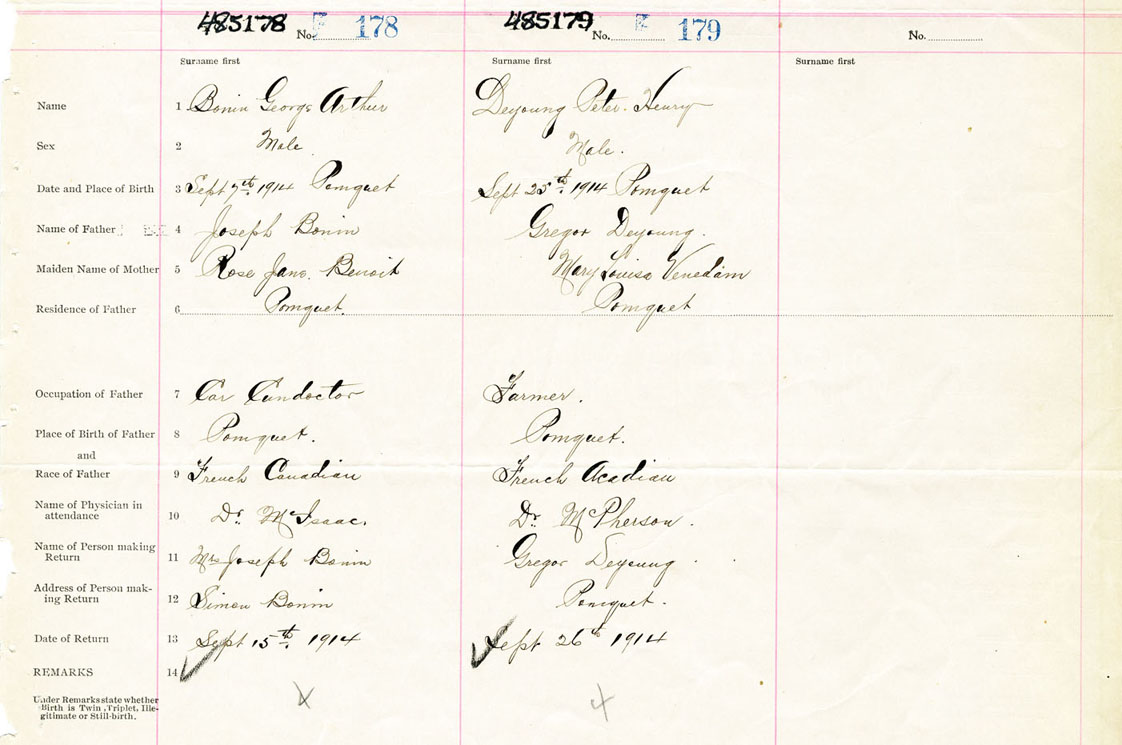 485178 No. E 178 485179 No. E 179 No.
Surname first Surname first Surname first
Name 1 Bonin George Arthur Deyoung Peter Henry
Sex 2 Male. Male.
Date and Place of Birth 3 Sept 7th 1914 Pomquet Sept 25th 1914 Pomquet
Name of Father 4 Joseph Bonin Gregor Deyoung.
Maiden Name of Mother 5 Rose Jane. Benoit Mary Louisa Venedam
Residence of Father 6 Pomquet. Pomquet
Occupation of Father 7 Car Conductor Farmer.
Place of Birth of Father 8 Pomquet. Pomquet.
and
Race of Father 9 French Canadian French Acadian
Name of Physician in
attendance 10 Dr. McIsaac. Dr. McPherson.
Name of Person making
Return 11 Mrs Joseph Bonin Gregor Deyoung
Address of Person mak-
ing Return 12 Simon Bonin Pomquet.
Date of Return 13 Sept 15th. 1914 Sept 26th 1914
REMARKS 14
Under Remarks state whether
Birth is Twin, Triplet, Ille-
gitimate or Still-birth.